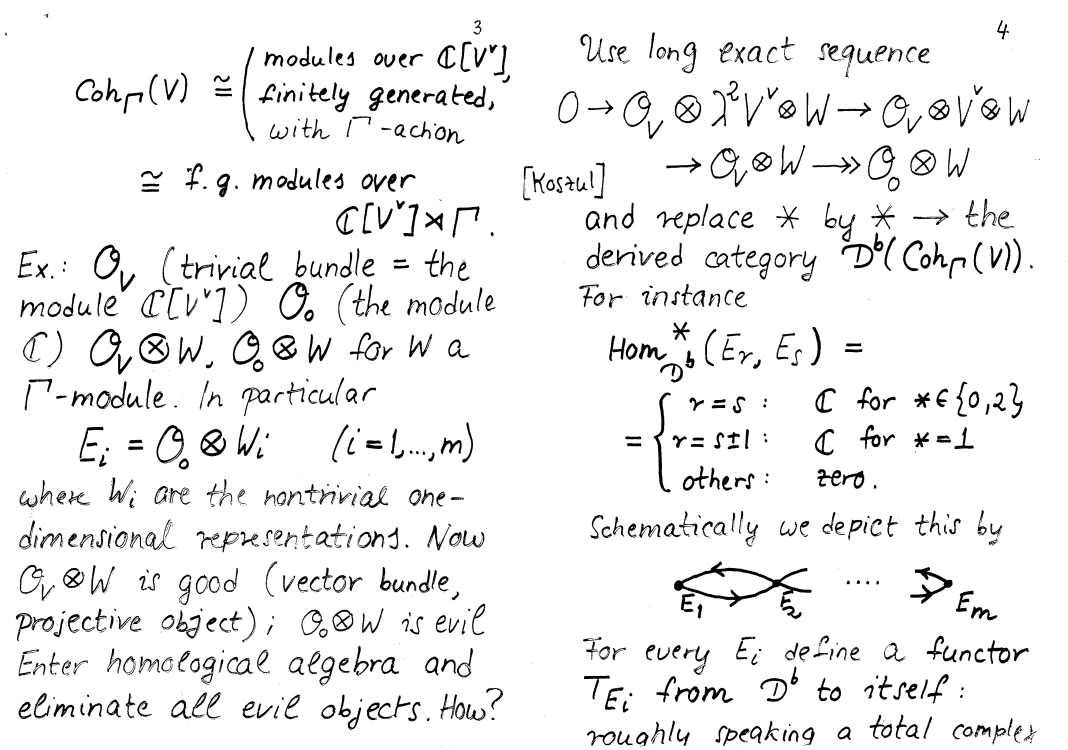 3
Coh_Γ(V) ≅ ( modules over ℂ[V^∨],
finitely generated,
with Γ-action
≅ f. g. modules over
ℂ[V^∨]⋊Γ.
Ex.: 𝒪_V (trivial bundle = the
module ℂ[V^∨]) 𝒪_0 (the module
ℂ) 𝒪_V⊗W, 𝒪_0⊗W for W a
Γ-module. In particular
E_i = 𝒪_0 ⊗ W_i (i=1,...,m)
where W_i are the nontrivial one-
dimensional representations. Now
𝒪_V⊗W is good (vector bundle,
projective object); 𝒪_0⊗W is evil
Enter homological algebra and
eliminate all evil objects. How?
4
Use long exact sequence
0 → 𝒪_V ⊗ λ^2V^∨⊗W → 𝒪_V⊗V^∨⊗W
→ 𝒪_V⊗W ↠ 𝒪_0⊗W
[Koszul]
and replace * by * → the
derived category D^b(Coh_Γ(V)).
For instance
Hom^*_{D^b}(E_r, E_s) =
= { r=s : ℂ for *∈{0,2}
r=s±1 : ℂ for *=1
others : zero.
Schematically we depict this by
E_1 E_2 .... E_m
For every E_i define a functor
T_{E_i} from D^b to itself :
roughly speaking a total complex